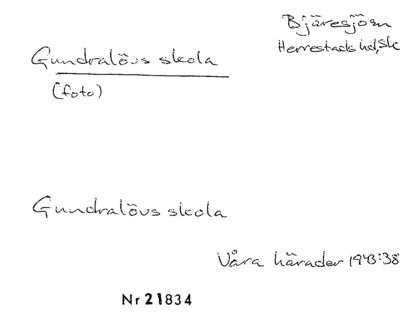 Gundralövs skola
(foto)
Bjäresjösn
Herrestads hd, Sk
Gundralövs skola
Våra härader 1943:38
Nr 21834